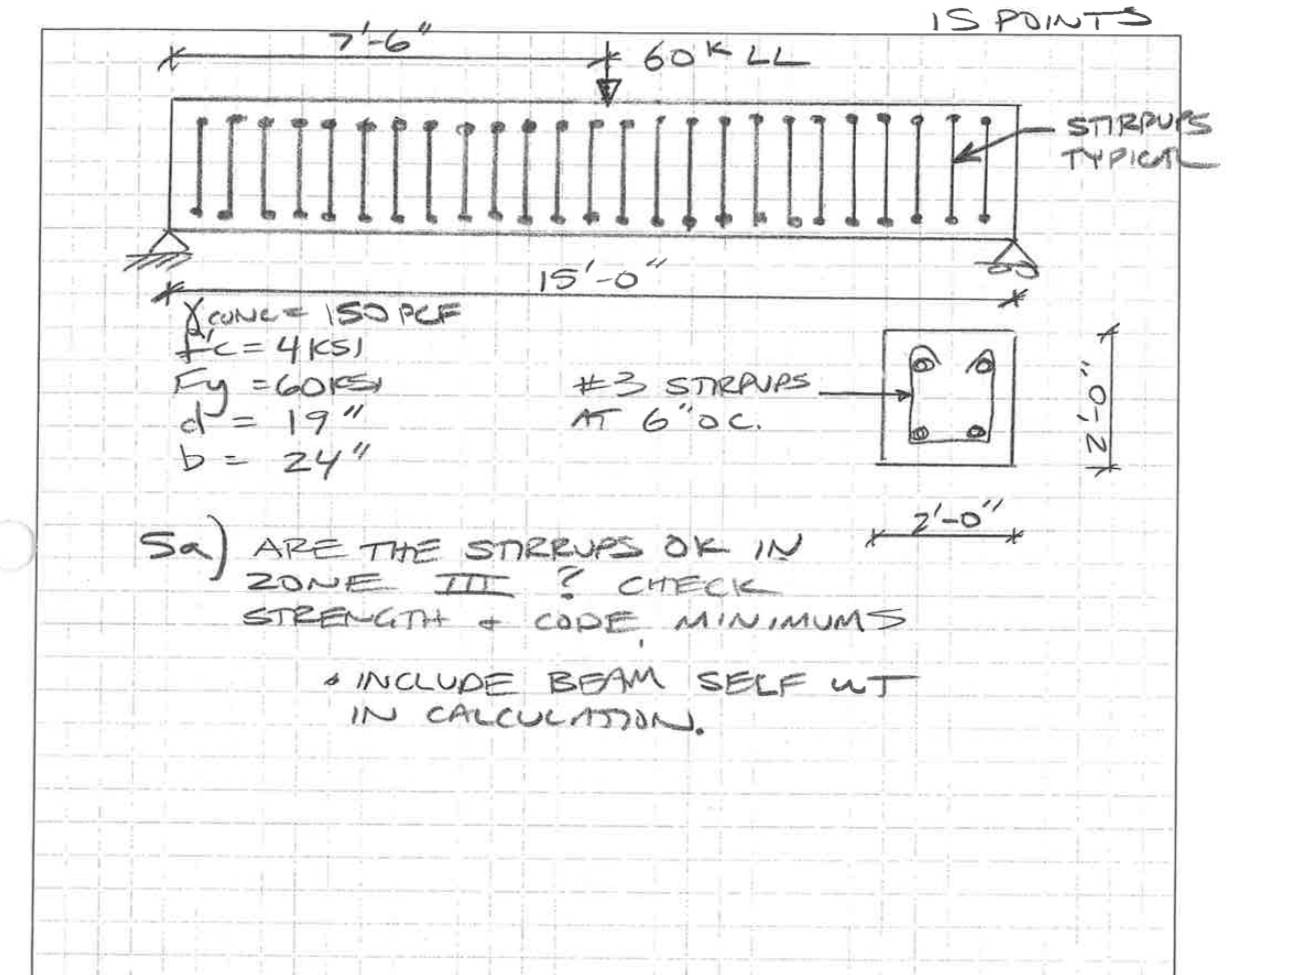 15 POINTS
7'-6"
60K LL
STIRRUPS
TYPICAL
15'-0"
γCONC = 150 PCF
f'c = 4 KSI
Fy = 60 KSI
d = 19"
b = 24"
#3 STIRRUPS
AT 6" OC.
2'-0"
2'-0"
5a) ARE THE STIRRUPS OK IN
ZONE III ? CHECK
STRENGTH & CODE MINIMUMS
• INCLUDE BEAM SELF WT
IN CALCULATION.